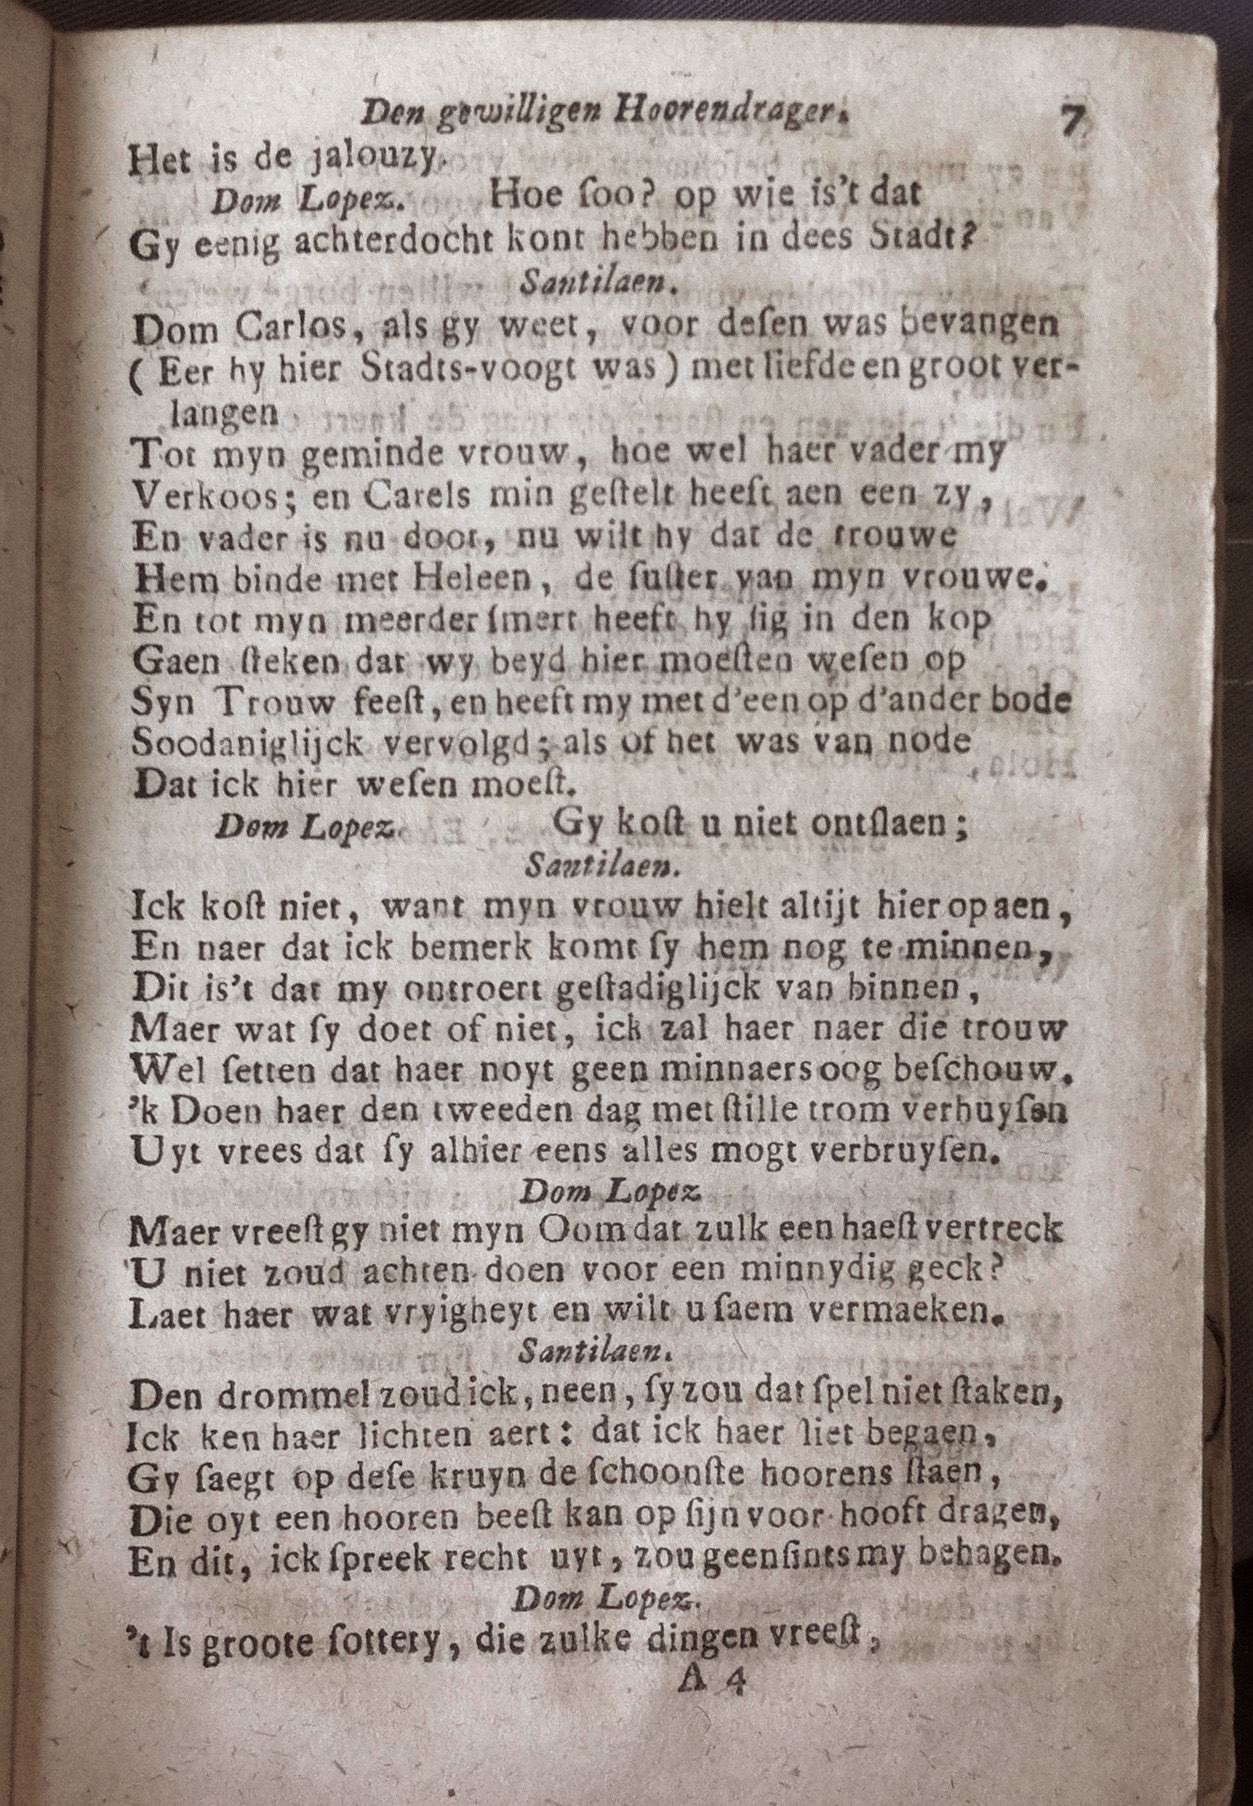 Den gewilligen Hoorendrager. 7
Het is de jalouzy.
Dom Lopez. Hoe ſoo? op wie is't dat
Gy eenig achterdocht kont hebben in dees Stadt?
Santilaen.
Dom Carlos, als gy weet, voor deſen was bevangen
(Eer hy hier Stadts-voogt was) met liefde en groot ver-
langen
Tot myn geminde vrouw, hoe wel haer vader my
Verkoos; en Carels min geſtelt heeft aen een zy,
En vader is nu doot, nu wilt hy dat de trouwe
Hem binde met Heleen, de ſuſter van myn vrouwe.
En tot myn meerder ſmert heeft hy ſig in den kop
Gaen ſteken dat wy beyd hier moeſten weſen op
Syn Trouw feeſt, en heeft my met d'een op d'ander bode
Soodaniglijck vervolgd; als of het was van node
Dat ick hier weſen moeſt.
Dom Lopez. Gy koſt u niet ontſlaen;
Santilaen.
Ick koſt niet, want myn vrouw hielt altijt hier op aen,
En naer dat ick bemerk komt ſy hem nog te minnen,
Dit is't dat my ontroert geſtadiglijck van binnen,
Maer wat ſy doet of niet, ick zal haer naer die trouw
Wel ſetten dat haer noyt geen minnaers oog beſchouw.
'k Doen haer den tweeden dag met ſtille trom verhuyſen
Uyt vrees dat ſy alhier eens alles mogt verbruyſen.
Dom Lopez
Maer vreeſt gy niet myn Oom dat zulk een haeſt vertreck
U niet zoud achten doen voor een minnydig geck?
Laet haer wat vryigheyt en wilt u ſaem vermaeken.
Santilaen.
Den drommel zoud ick, neen, ſy zou dat ſpel niet ſtaken,
Ick ken haer lichten aert: dat ick haer liet begaen,
Gy ſaegt op deſe kruyn de ſchoonſte hoorens ſtaen,
Die oyt een hooren beeſt kan op ſijn voor hooft dragen,
En dit, ick ſpreek recht uyt, zou geenſints my behagen.
Dom Lopez.
't Is groote ſottery, die zulke dingen vreeſt,
A 4